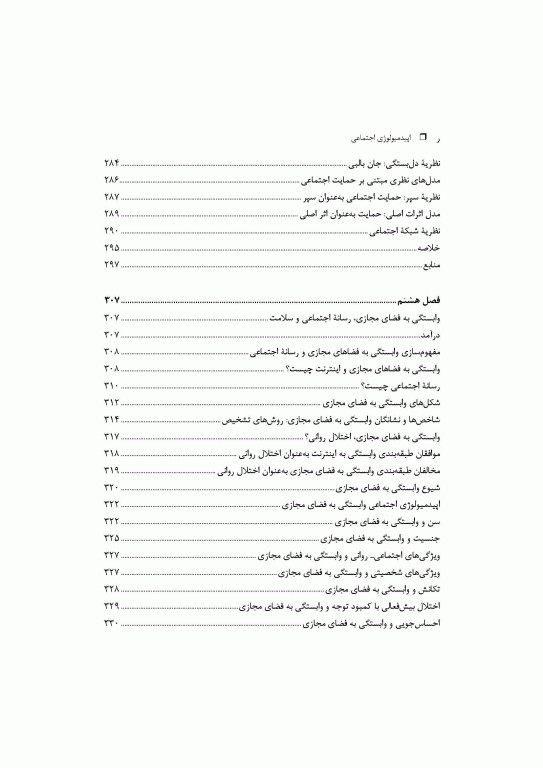 ر ❒ اپیدمیولوژی اجتماعی
نظریهٔ دل‌بستگی: جان بالبی ... ۲۸۴
مدل‌های نظری مبتنی بر حمایت اجتماعی ... ۲۸۶
نظریهٔ سپر: حمایت اجتماعی به‌عنوان سپر ... ۲۸۷
مدل اثرات اصلی: حمایت به‌عنوان اثر اصلی ... ۲۸۹
نظریهٔ شبکهٔ اجتماعی ... ۲۹۰
خلاصه ... ۲۹۵
منابع ... ۲۹۷
فصل هشتم ... ۳۰۷
وابستگی به فضای مجازی، رسانهٔ اجتماعی و سلامت ... ۳۰۷
درآمد ... ۳۰۷
مفهوم‌سازی وابستگی به فضاهای مجازی و رسانهٔ اجتماعی ... ۳۰۸
وابستگی به فضاهای مجازی و اینترنت چیست؟ ... ۳۰۸
رسانهٔ اجتماعی چیست؟ ... ۳۱۰
شکل‌های وابستگی به فضای مجازی ... ۳۱۲
شاخص‌ها و نشانگان وابستگی به فضای مجازی: روش‌های تشخیص ... ۳۱۴
وابستگی به فضای مجازی، اختلال روانی؟ ... ۳۱۷
موافقان طبقه‌بندی وابستگی به اینترنت به‌عنوان اختلال روانی ... ۳۱۸
مخالفان طبقه‌بندی وابستگی به فضای مجازی به‌عنوان اختلال روانی ... ۳۱۹
شیوع وابستگی به فضای مجازی ... ۳۲۰
اپیدمیولوژی اجتماعی وابستگی به فضای مجازی ... ۳۲۲
سن و وابستگی به فضای مجازی ... ۳۲۲
جنسیت و وابستگی به فضای مجازی ... ۳۲۵
ویژگی‌های اجتماعی- روانی و وابستگی به فضای مجازی ... ۳۲۷
ویژگی‌های شخصیتی و وابستگی به فضای مجازی ... ۳۲۷
تکانش و وابستگی به فضای مجازی ... ۳۲۸
اختلال بیش‌فعالی با کمبود توجه و وابستگی به فضای مجازی ... ۳۲۹
احساس‌جویی و وابستگی به فضای مجازی ... ۳۳۰